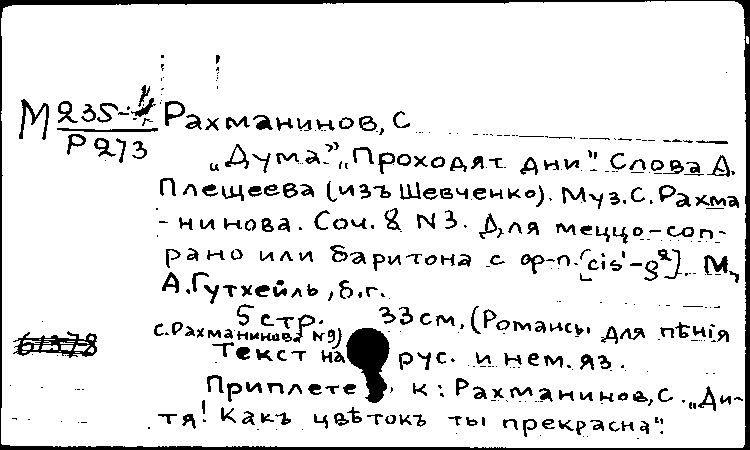 М 235-4
Р 273
Рахманинов, С
„Дума." „Проходят дни". Слова А.
Плещеева (изъ Шевченко). Муз. С. Рахма
-нинова. Соч. 8 N3. Для меццо-соп-
рано или баритона с ф-п. [cis'-g²] М.,
А. Гутхейль, б.г.
5 стр. 33 см, (Романсы для пѣнія
С. Рахманинова N9)
Текст на рус. и нем. яз.
61378
Приплете к: Рахманинов, С. „Ди-
тя! Какъ цвѣтокъ ты прекрасна".